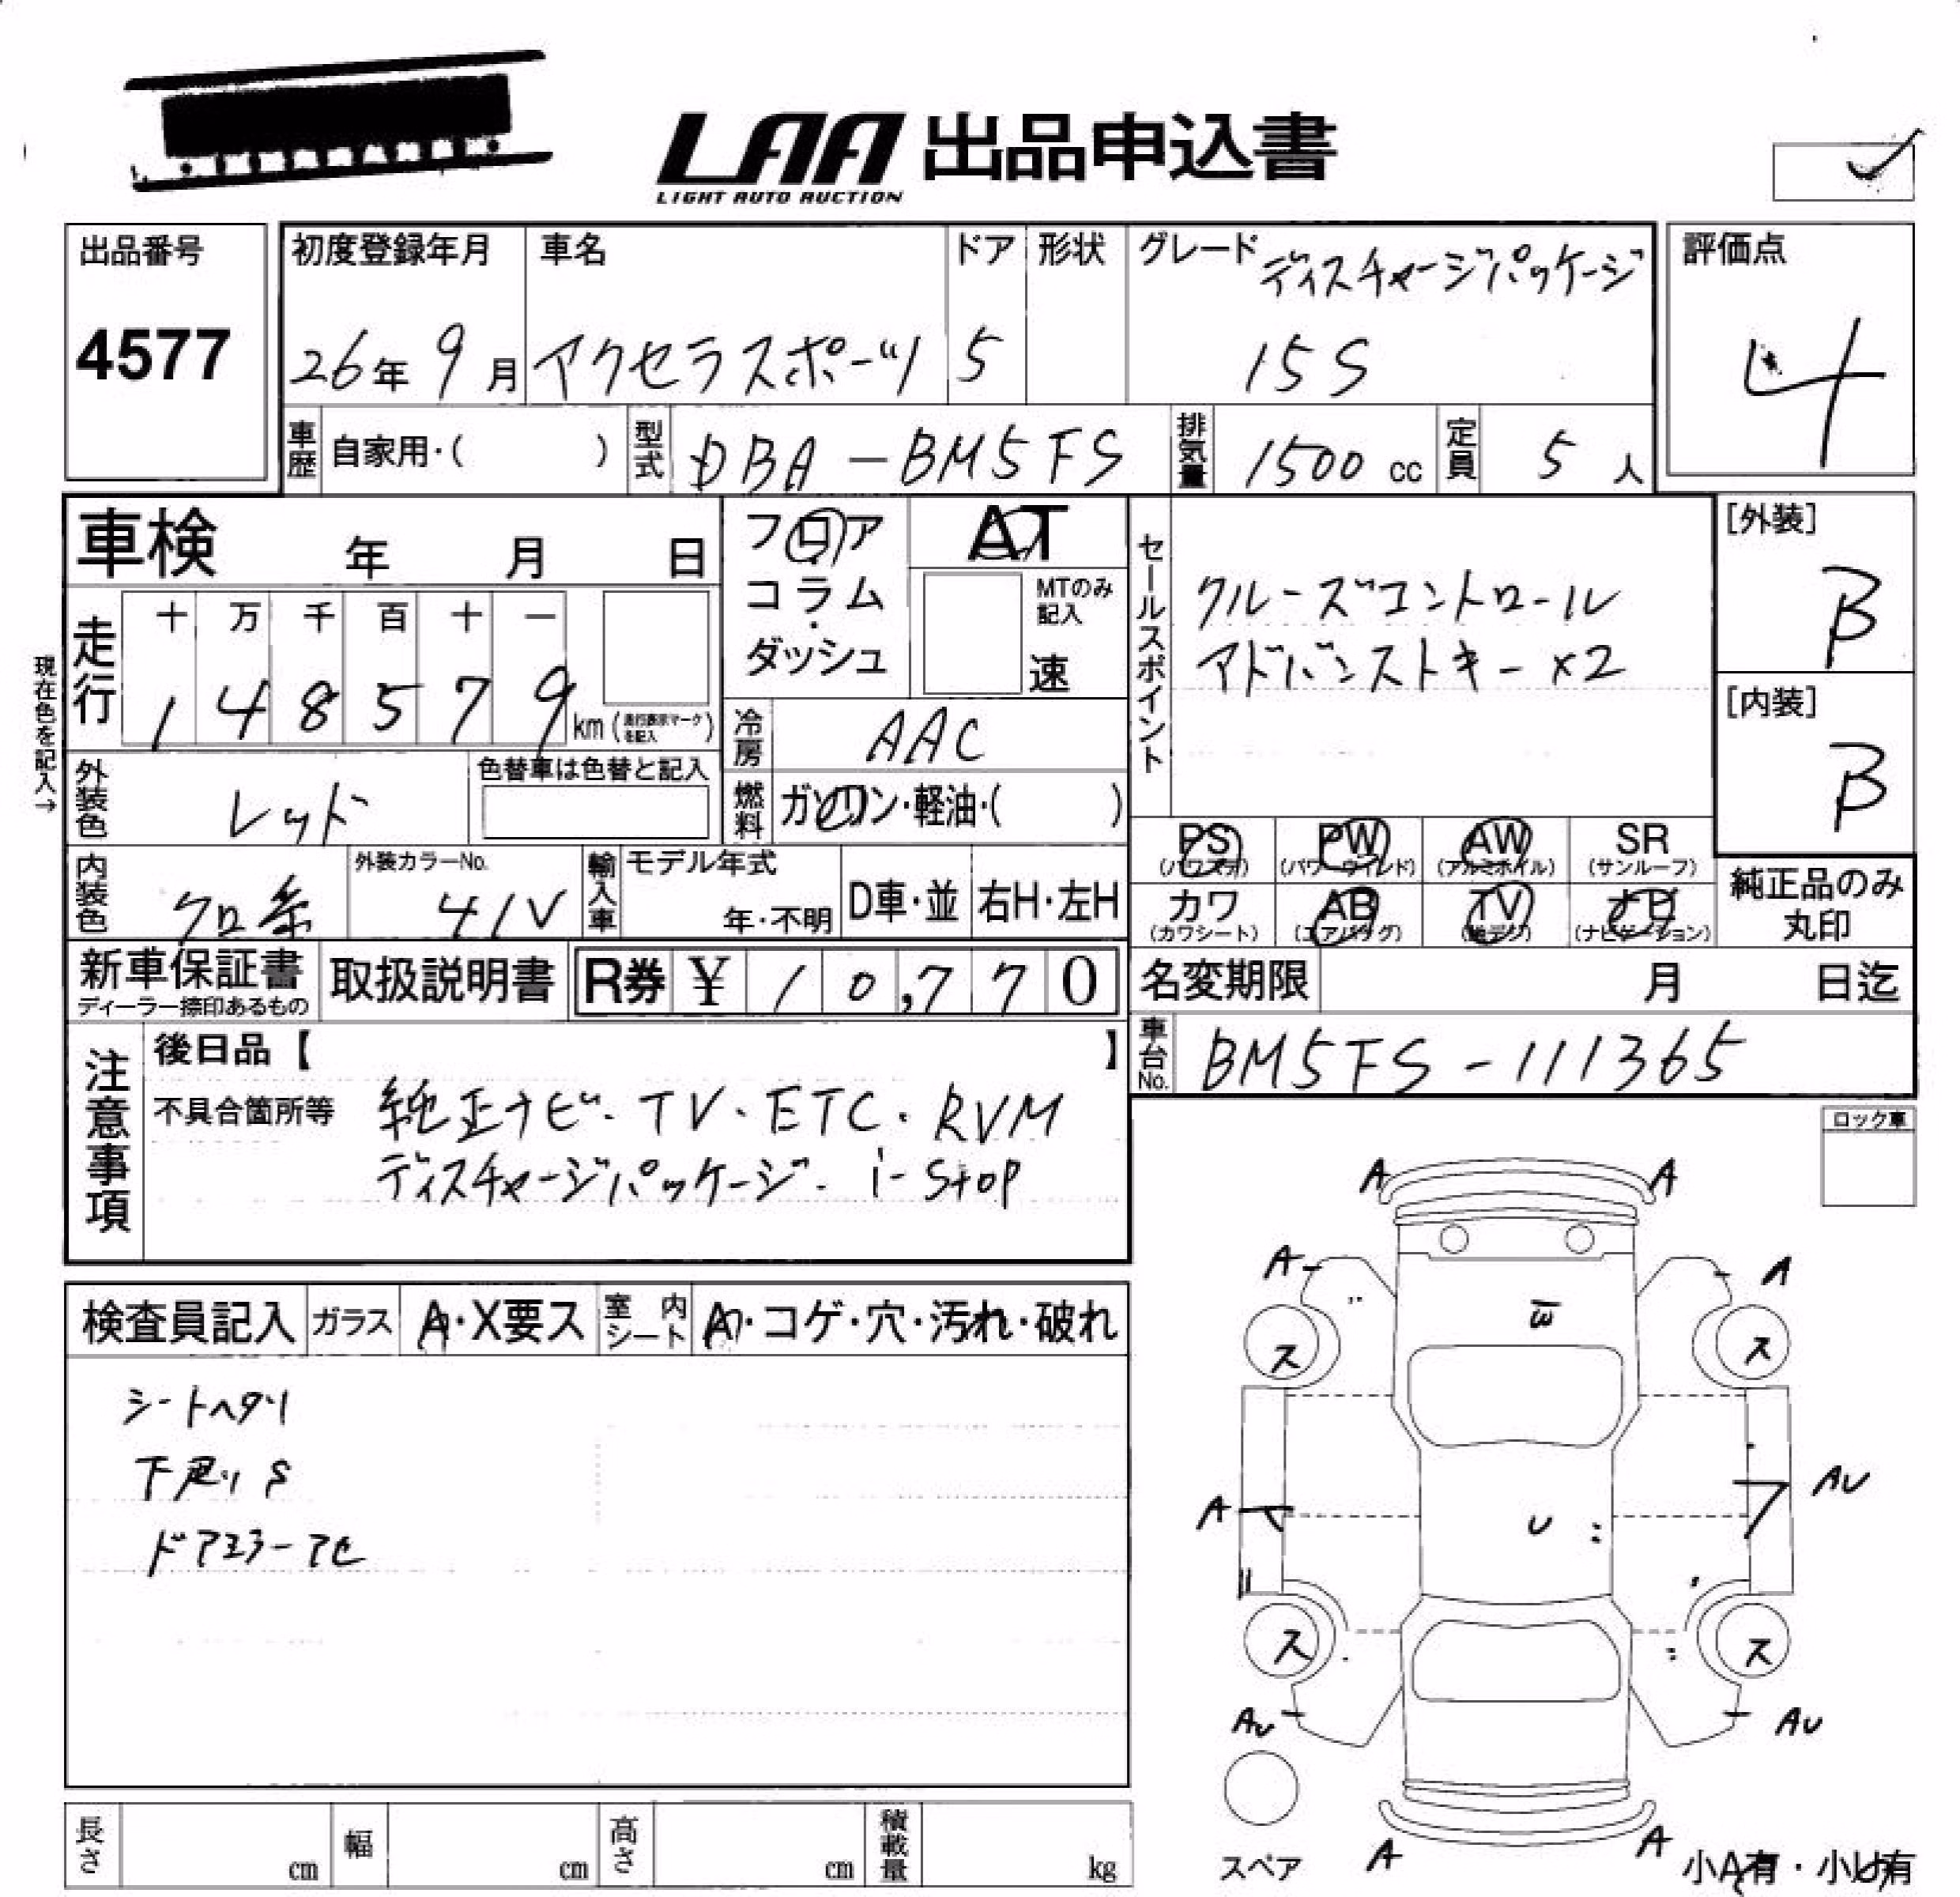 LAA 出品申込書
LIGHT AUTO AUCTION
出品番号
4577
初度登録年月
26年 9月
車名
アクセラスポーツ
ドア
5
形状
グレード
ディスチャージパッケージ
15S
評価点
4
車歴
自家用・( )
型式
DBA-BM5FS
排気量
1500 cc
定員
5 人
車検 年 月 日
フロア
コラム
・
ダッシュ
AT
MTのみ
記入
速
セールスポイント
クルーズコントロール
アドバンストキー x2
[外装]
B
[内装]
B
現在色を記入→
走行
十 万 千 百 十 一
1 4 8 5 7 9 km (走行表示マークを記入)
冷房
AAC
外装色
レッド
色替車は色替と記入
燃料
ガソリン・軽油・( )
PS
(パワステ)
PW
(パワーウインド)
AW
(アルミホイル)
SR
(サンルーフ)
カワ
(カワシート)
AB
(エアバッグ)
TV
(地デジ)
ナビ
(ナビゲーション)
純正品のみ
丸印
内装色
クロ系
外装カラーNo.
41V
輸入車
モデル年式
年・不明
D車・並
右H・左H
新車保証書
ディーラー捺印あるもの
取扱説明書
R券 ¥ 10,770
名変期限 月 日迄
車台No.
BM5FS-111365
注意事項
後日品【 】
不具合箇所等
純正ナビ・TV・ETC・RVM
ディスチャージパッケージ・i-stop
ロック車
検査員記入
ガラス
A・X要ス
室内シート
A・コゲ・穴・汚れ・破れ
シートヘタリ
下廻り S
ドアミラーアセ
A
A
A
A
W
ス
ス
A
U
AU
ス
ス
AU
AU
スペア
A
A
小A有・小U有
長さ cm
幅 cm
高さ cm
積載量 kg